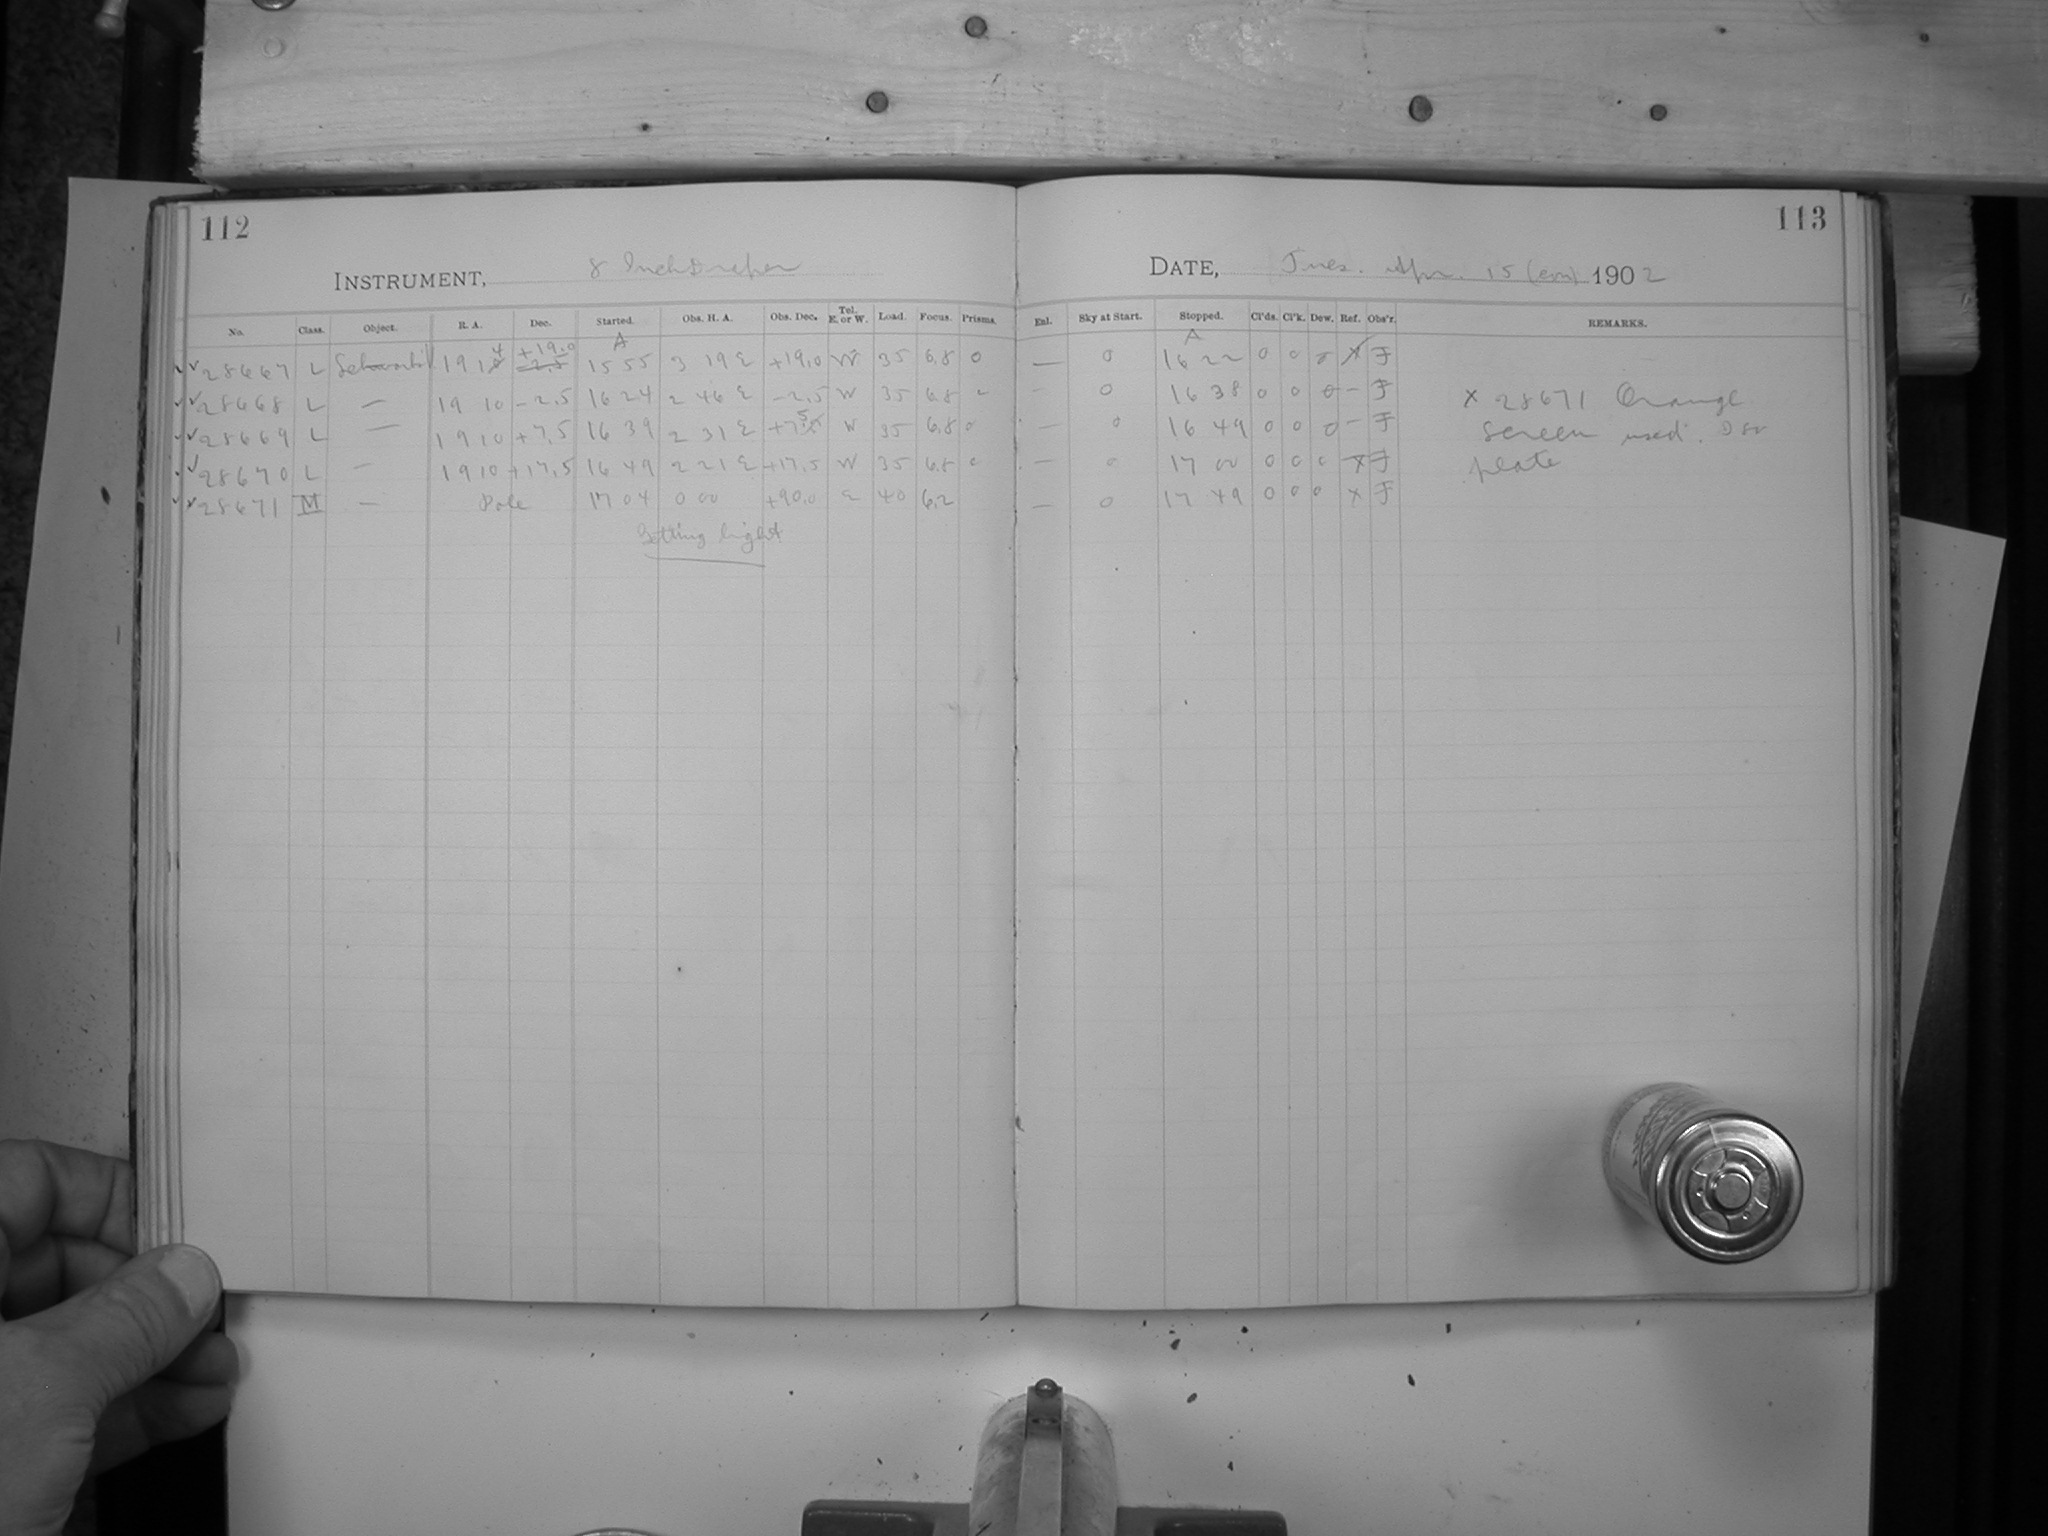 112
113
INSTRUMENT, 8 Inch Draper
DATE, Tues. Apr. 15 (con) 1902
No. Class. Object. R. A. Dec. Started. Obs. H. A. Obs. Dec. Tel. E. or W. Load. Focus. Prisms. Enl. Sky at Start. Stopped. Cl'ds. Cl'k. Dew. Ref. Obs'r. REMARKS.
A A
28667 L 19 14 +19.0 15 55 3 19 E +19.0 W 35 6.8 0 — 0 16 22 0 0 0 X F
28668 L — 19 10 -2.5 16 24 2 46 E -2.5 W 35 6.8 — 0 16 38 0 0 0 — F
x 28671 Orange
28669 L — 19 10 +7.5 16 39 2 31 E +7.5 W 35 6.8 0 — 0 16 49 0 0 0 — F
screen used.
28670 L — 19 10 +17.5 16 49 2 21 E +17.5 W 35 6.8 0 — 0 17 00 0 0 0 X F
plate
28671 M — Pole 17 04 0 00 +90.0 E 40 6.2 — 0 17 49 0 0 0 x F
Getting light